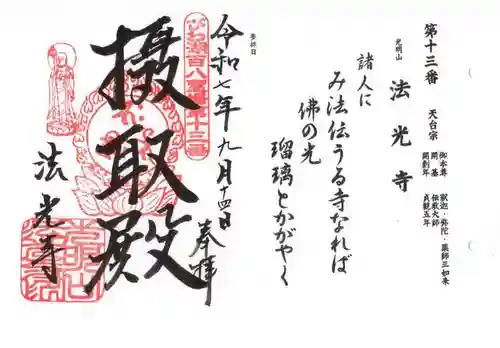 第十三番 天台宗
御本尊 釈迦・弥陀・薬師三如来
開基 伝教大師
開創年 貞観五年
光明山 法光寺
諸人に
み法伝うる寺なれば
佛の光
瑠璃とかがやく
参拝日
令和七年九月十四日
奉拝
びわ湖百八霊場第十三番
摄取殿
法光寺